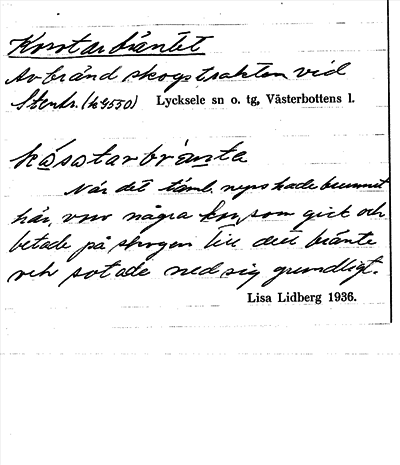 Kosotarbräntet
Avbränd skogstrakten vid
Stentr. (k 9550) Lycksele sn o. tg, Västerbottens l.
kåsotarbränta
När det tämb. nyss hade brunnit
här, vor några kor, som gick och
betade på skogen till det bränte
och sotade ned sig grundligt.
Lisa Lidberg 1936.